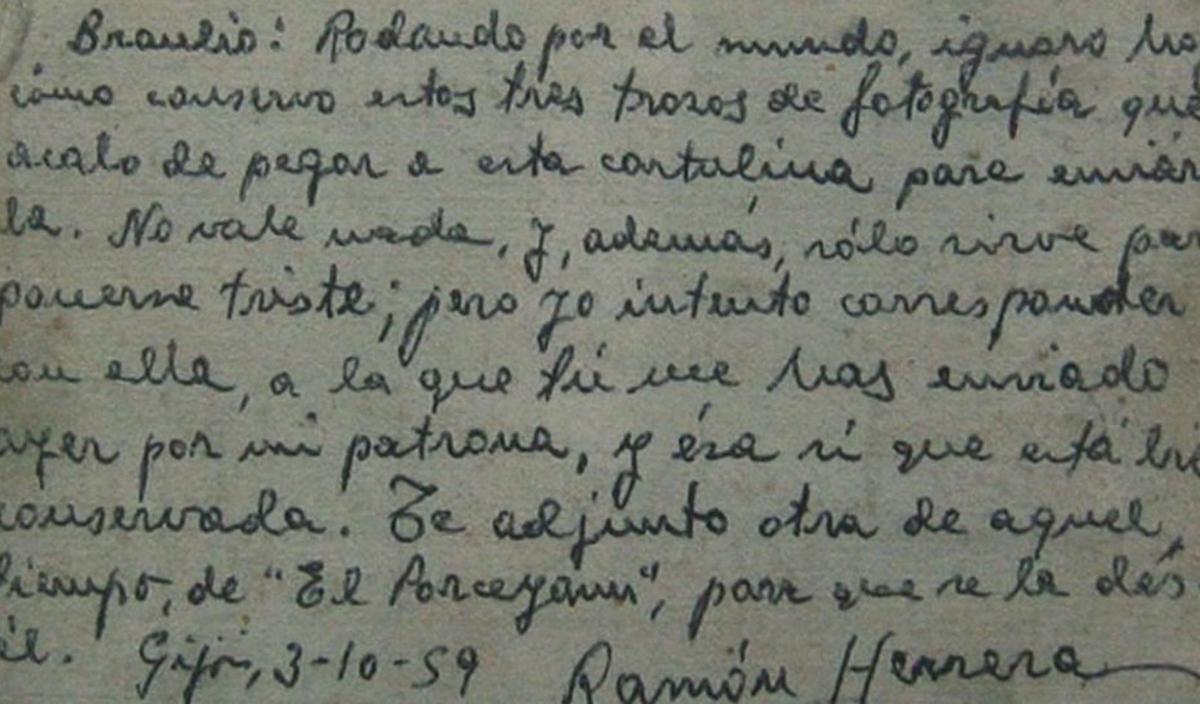 Braulio: Rodando por el mundo, ignoro ha
cómo conservo estos tres trozos de fotografía que
acabo de pegar a esta cartulina para enviár
la. No vale nada, y, además, sólo sirve par
ponerse triste; pero yo intento corresponder
con ella, a la que tú me has enviado
ayer por mi patrona, y ésa sí que está bi
conservada. Te adjunto otra de aquel
tiempo, de "El Porceyanu", para que se la dés
él. Gijón, 3-10-59 Ramón Herrera